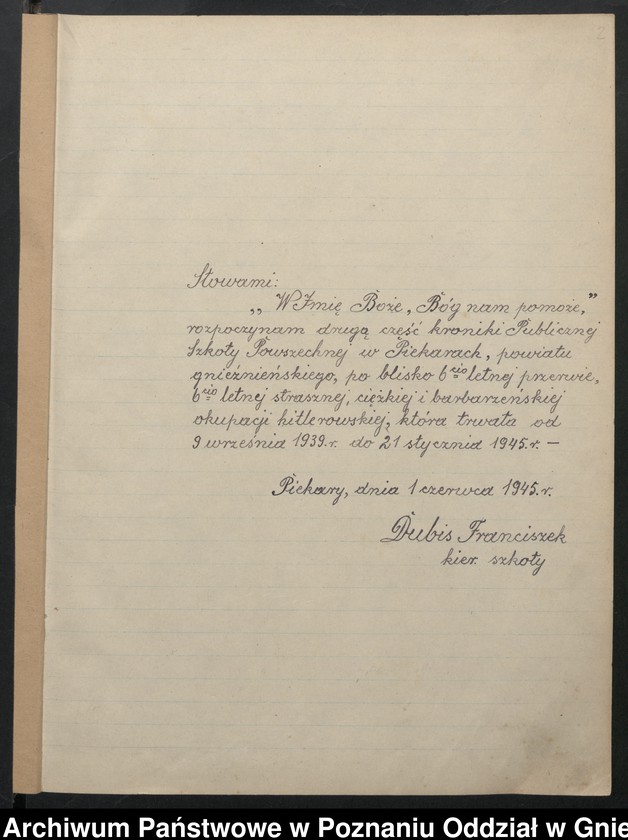 2
Słowami:
„ W Imię Boże, Bóg nam pomoże,”
rozpoczynam drugą część kroniki Publicznej
Szkoły Powszechnej w Piekarach, powiatu
gnieźnieńskiego, po blisko 6cio letnej przerwie,
6cio letnej strasznej, ciężkiej i barbarzeńskiej
okupacji hitlerowskiej, która trwała od
9 września 1939.r. do 21 stycznia 1945.r. —
Piekary, dnia 1 czerwca 1945.r.
Dubis Franciszek
kier. szkoły
Archiwum Państwowe w Poznaniu Oddział w Gnie